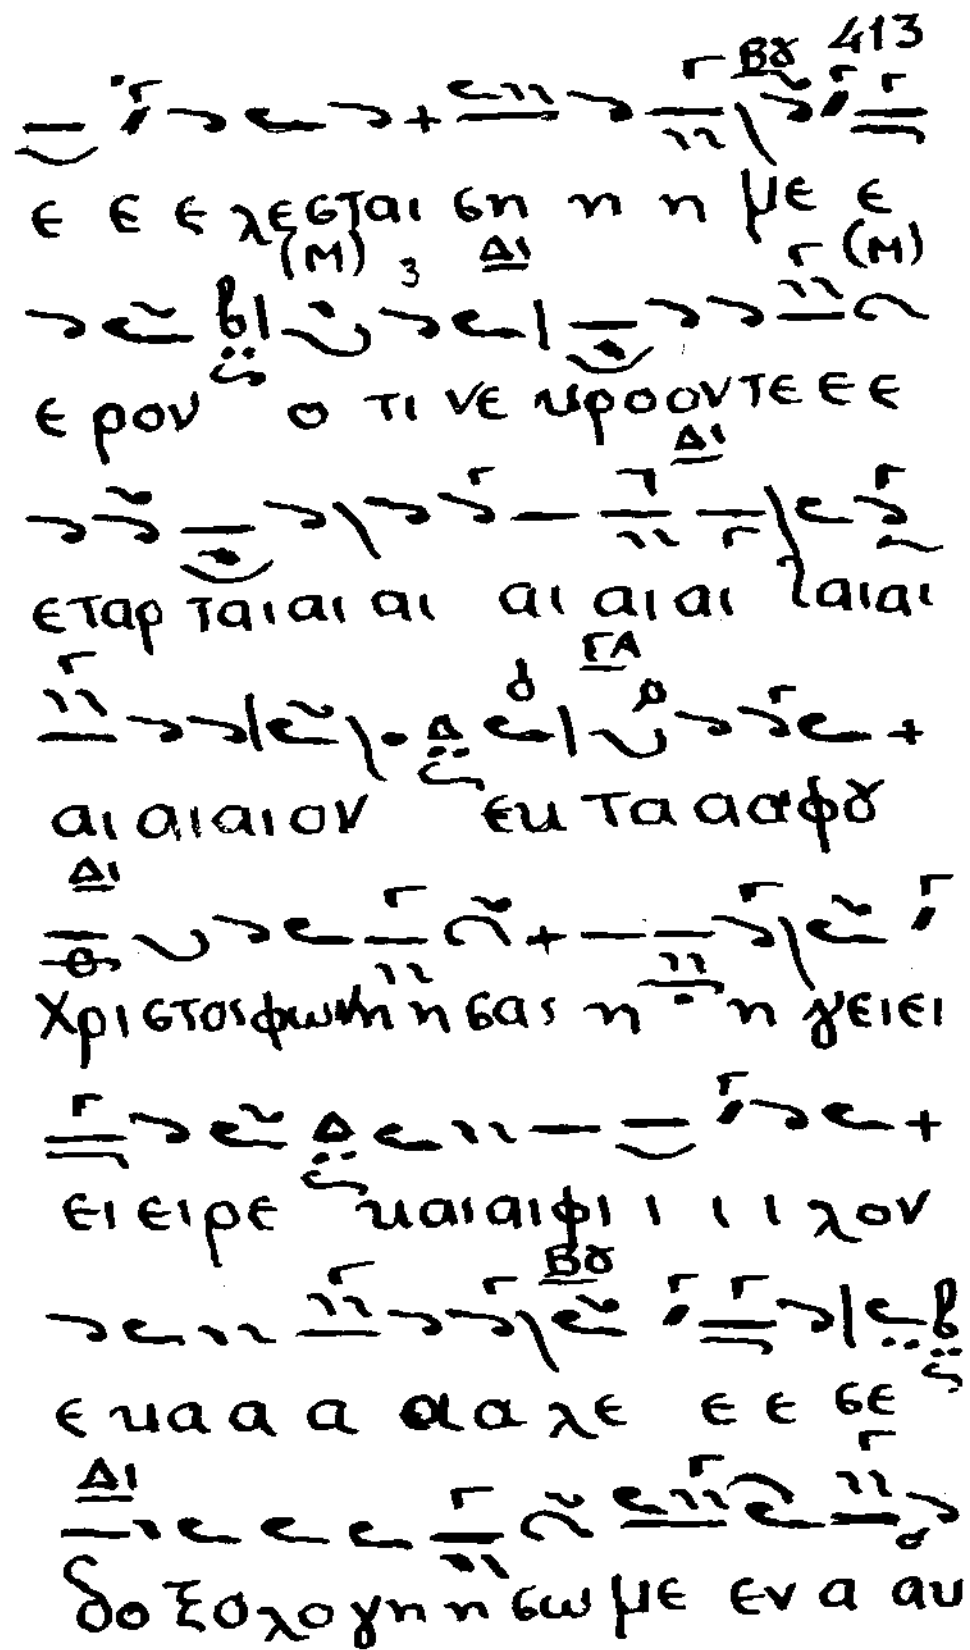 413
Βȣ
ε ε ε λεσται ση η η με ε
(Μ) 3 Δι (Μ)
ε ρον ο τι νε κροοντε ε ε
Δι
εταρ ταιαι αι αι αι αι αι λαιαι
ΓΑ
αι αι αι ον εκ τα α αφȣ
Δι
Χριστος φωνη η σας η η γειει
ει ει ρε και αι φι ι ι ι λον
Βȣ
ε κα α α α α λε ε ε σε
Δι
δο ξο λο γη η σω με εν α αυ